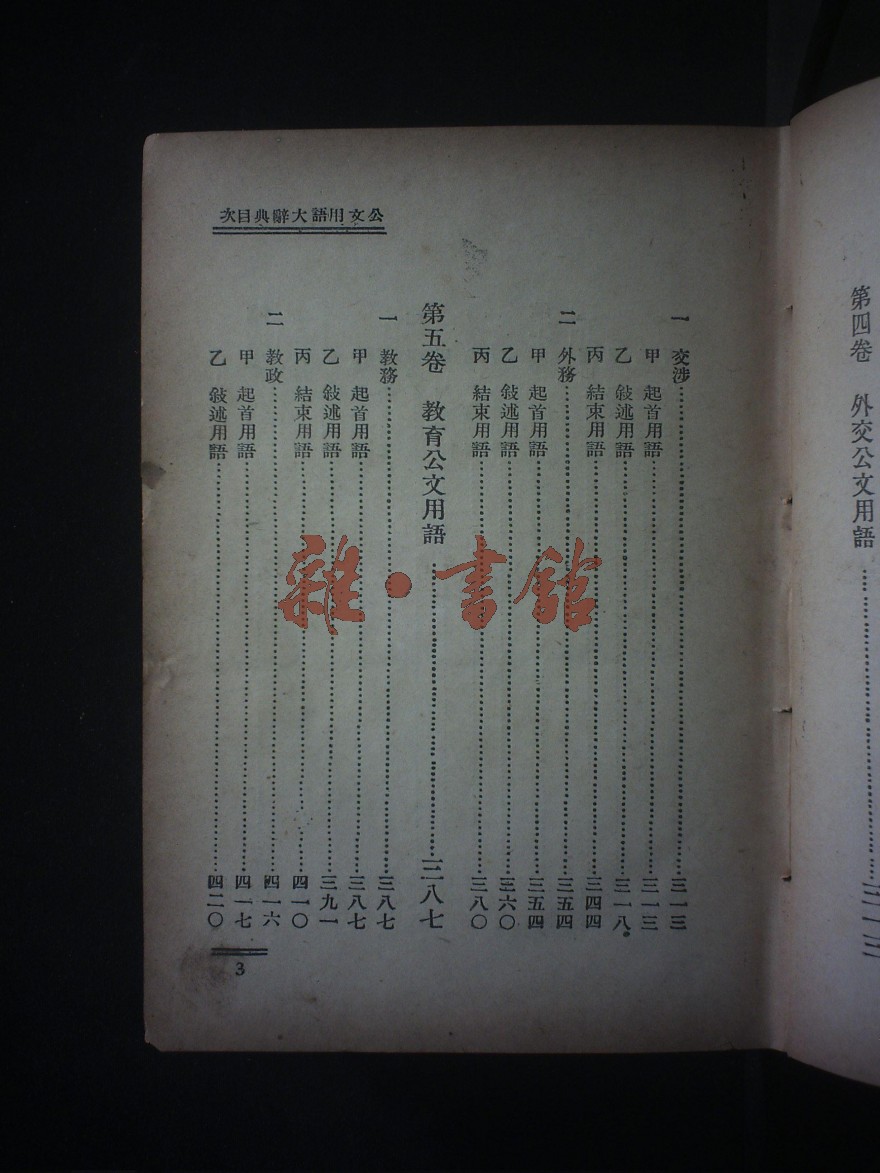 第四卷 外交公文用語……三一三
公文用語大辭典目次
一 交涉……三一三
甲 起首用語……三一三
乙 敍述用語……三一八
丙 結束用語……三四四
二 外務……三五四
甲 起首用語……三五四
乙 敍述用語……三六〇
丙 結束用語……三八〇
第五卷 教育公文用語……三八七
一 教務……三八七
甲 起首用語……三八七
乙 敍述用語……三九一
丙 結束用語……四一〇
二 教政……四一六
甲 起首用語……四一七
乙 敍述用語……四二〇
3
雜·書館